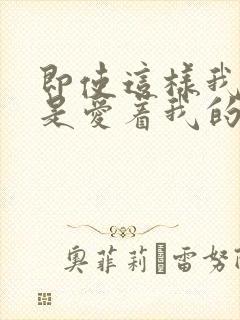 即使這樣我
是愛着我的
奧菲莉 雷努